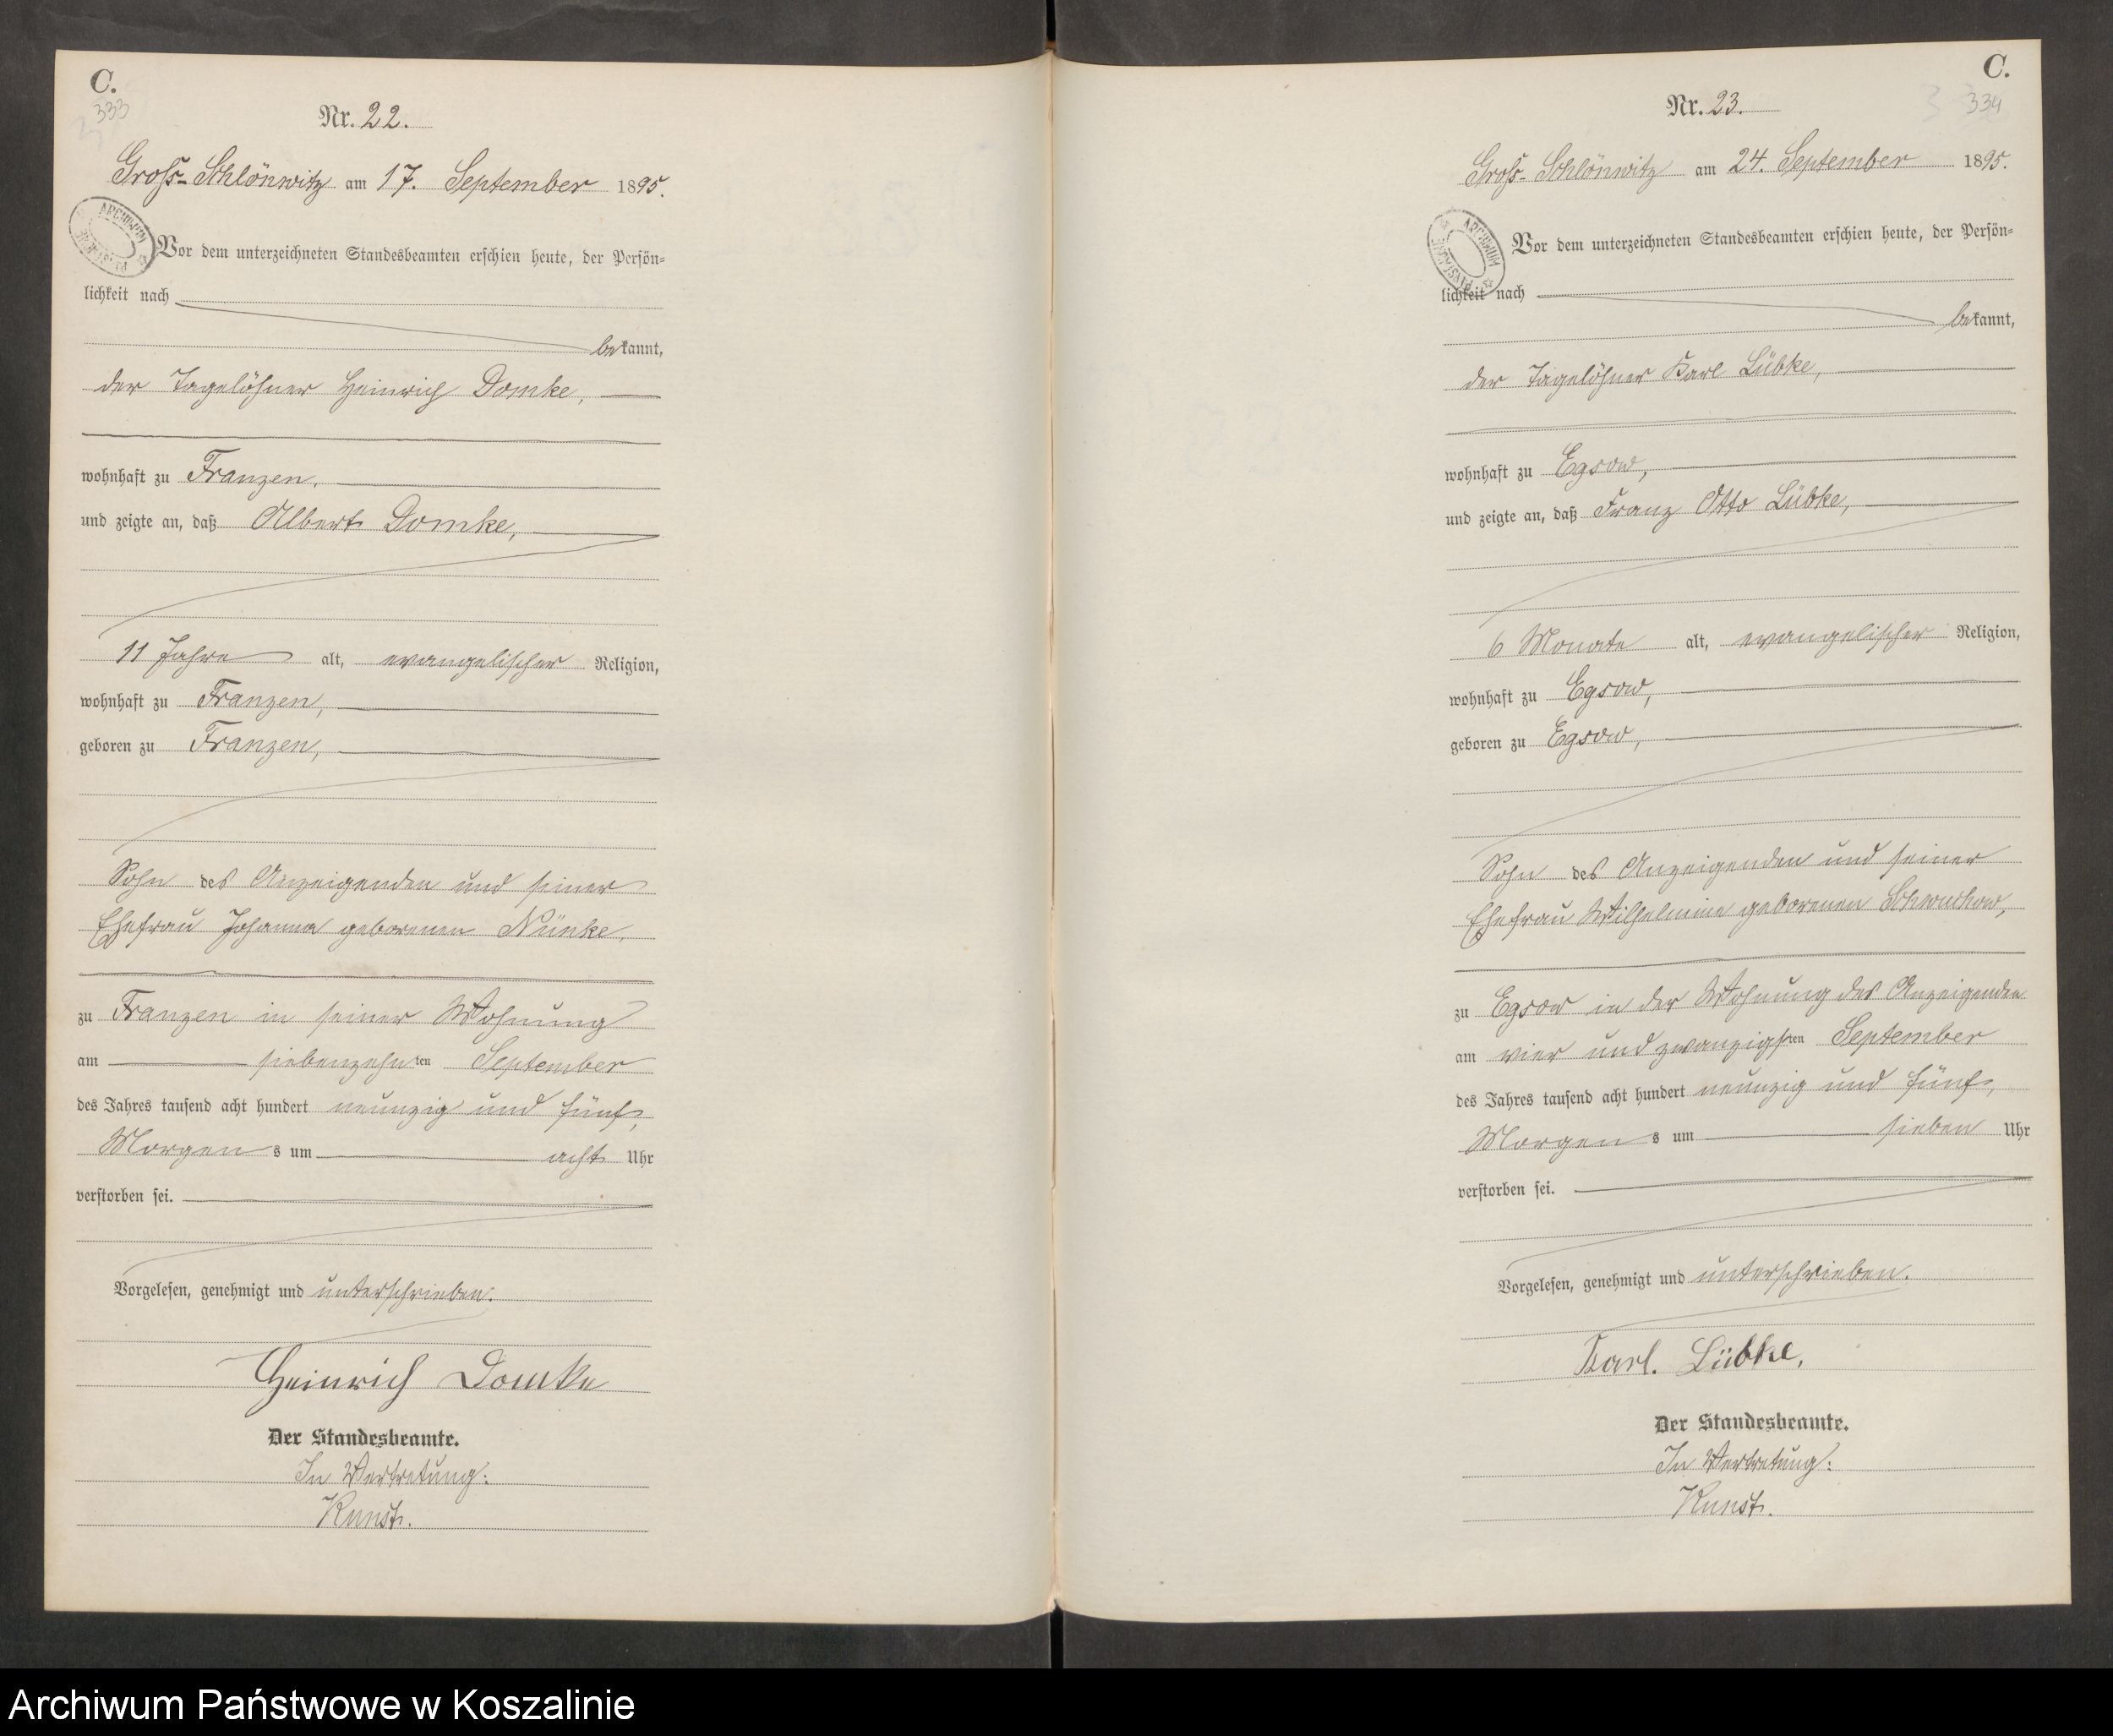 C.
333
Nr. 22.
Groß-Schlönwitz am 17. September 1895.
ARCHIWUM
Vor dem unterzeichneten Standesbeamten erschien heute, der Persön-
lichkeit nach
bekannt,
der Tagelöhner Heinrich Domke,
wohnhaft zu Franzen,
und zeigte an, daß Albert Domke,
11 Jahre alt, evangelischer Religion,
wohnhaft zu Franzen,
geboren zu Franzen,
Sohn des Anzeigenden und seiner
Ehefrau Johanna geborenen Nünke,
zu Franzen in seiner Wohnung
am siebenzehnten September
des Jahres tausend acht hundert neunzig und fünf,
Morgens um acht Uhr
verstorben sei.
Vorgelesen, genehmigt und unterschrieben.
Heinrich Domke
Der Standesbeamte.
In Vertretung:
Kunst.
C.
334
Nr. 23.
Groß-Schlönwitz am 24. September 1895.
ARCHIWUM
Vor dem unterzeichneten Standesbeamten erschien heute, der Persön-
lichkeit nach
bekannt,
der Tagelöhner Karl Lübke,
wohnhaft zu Egsow,
und zeigte an, daß Franz Otto Lübke,
6 Monate alt, evangelischer Religion,
wohnhaft zu Egsow,
geboren zu Egsow,
Sohn des Anzeigenden und seiner
Ehefrau Wilhelmine geborenen Schwuchow,
zu Egsow in der Wohnung des Anzeigenden
am vier und zwanzigsten September
des Jahres tausend acht hundert neunzig und fünf,
Morgens um sieben Uhr
verstorben sei.
Vorgelesen, genehmigt und unterschrieben.
Karl. Lübke,
Der Standesbeamte.
In Vertretung:
Kunst.
Archiwum Państwowe w Koszalinie